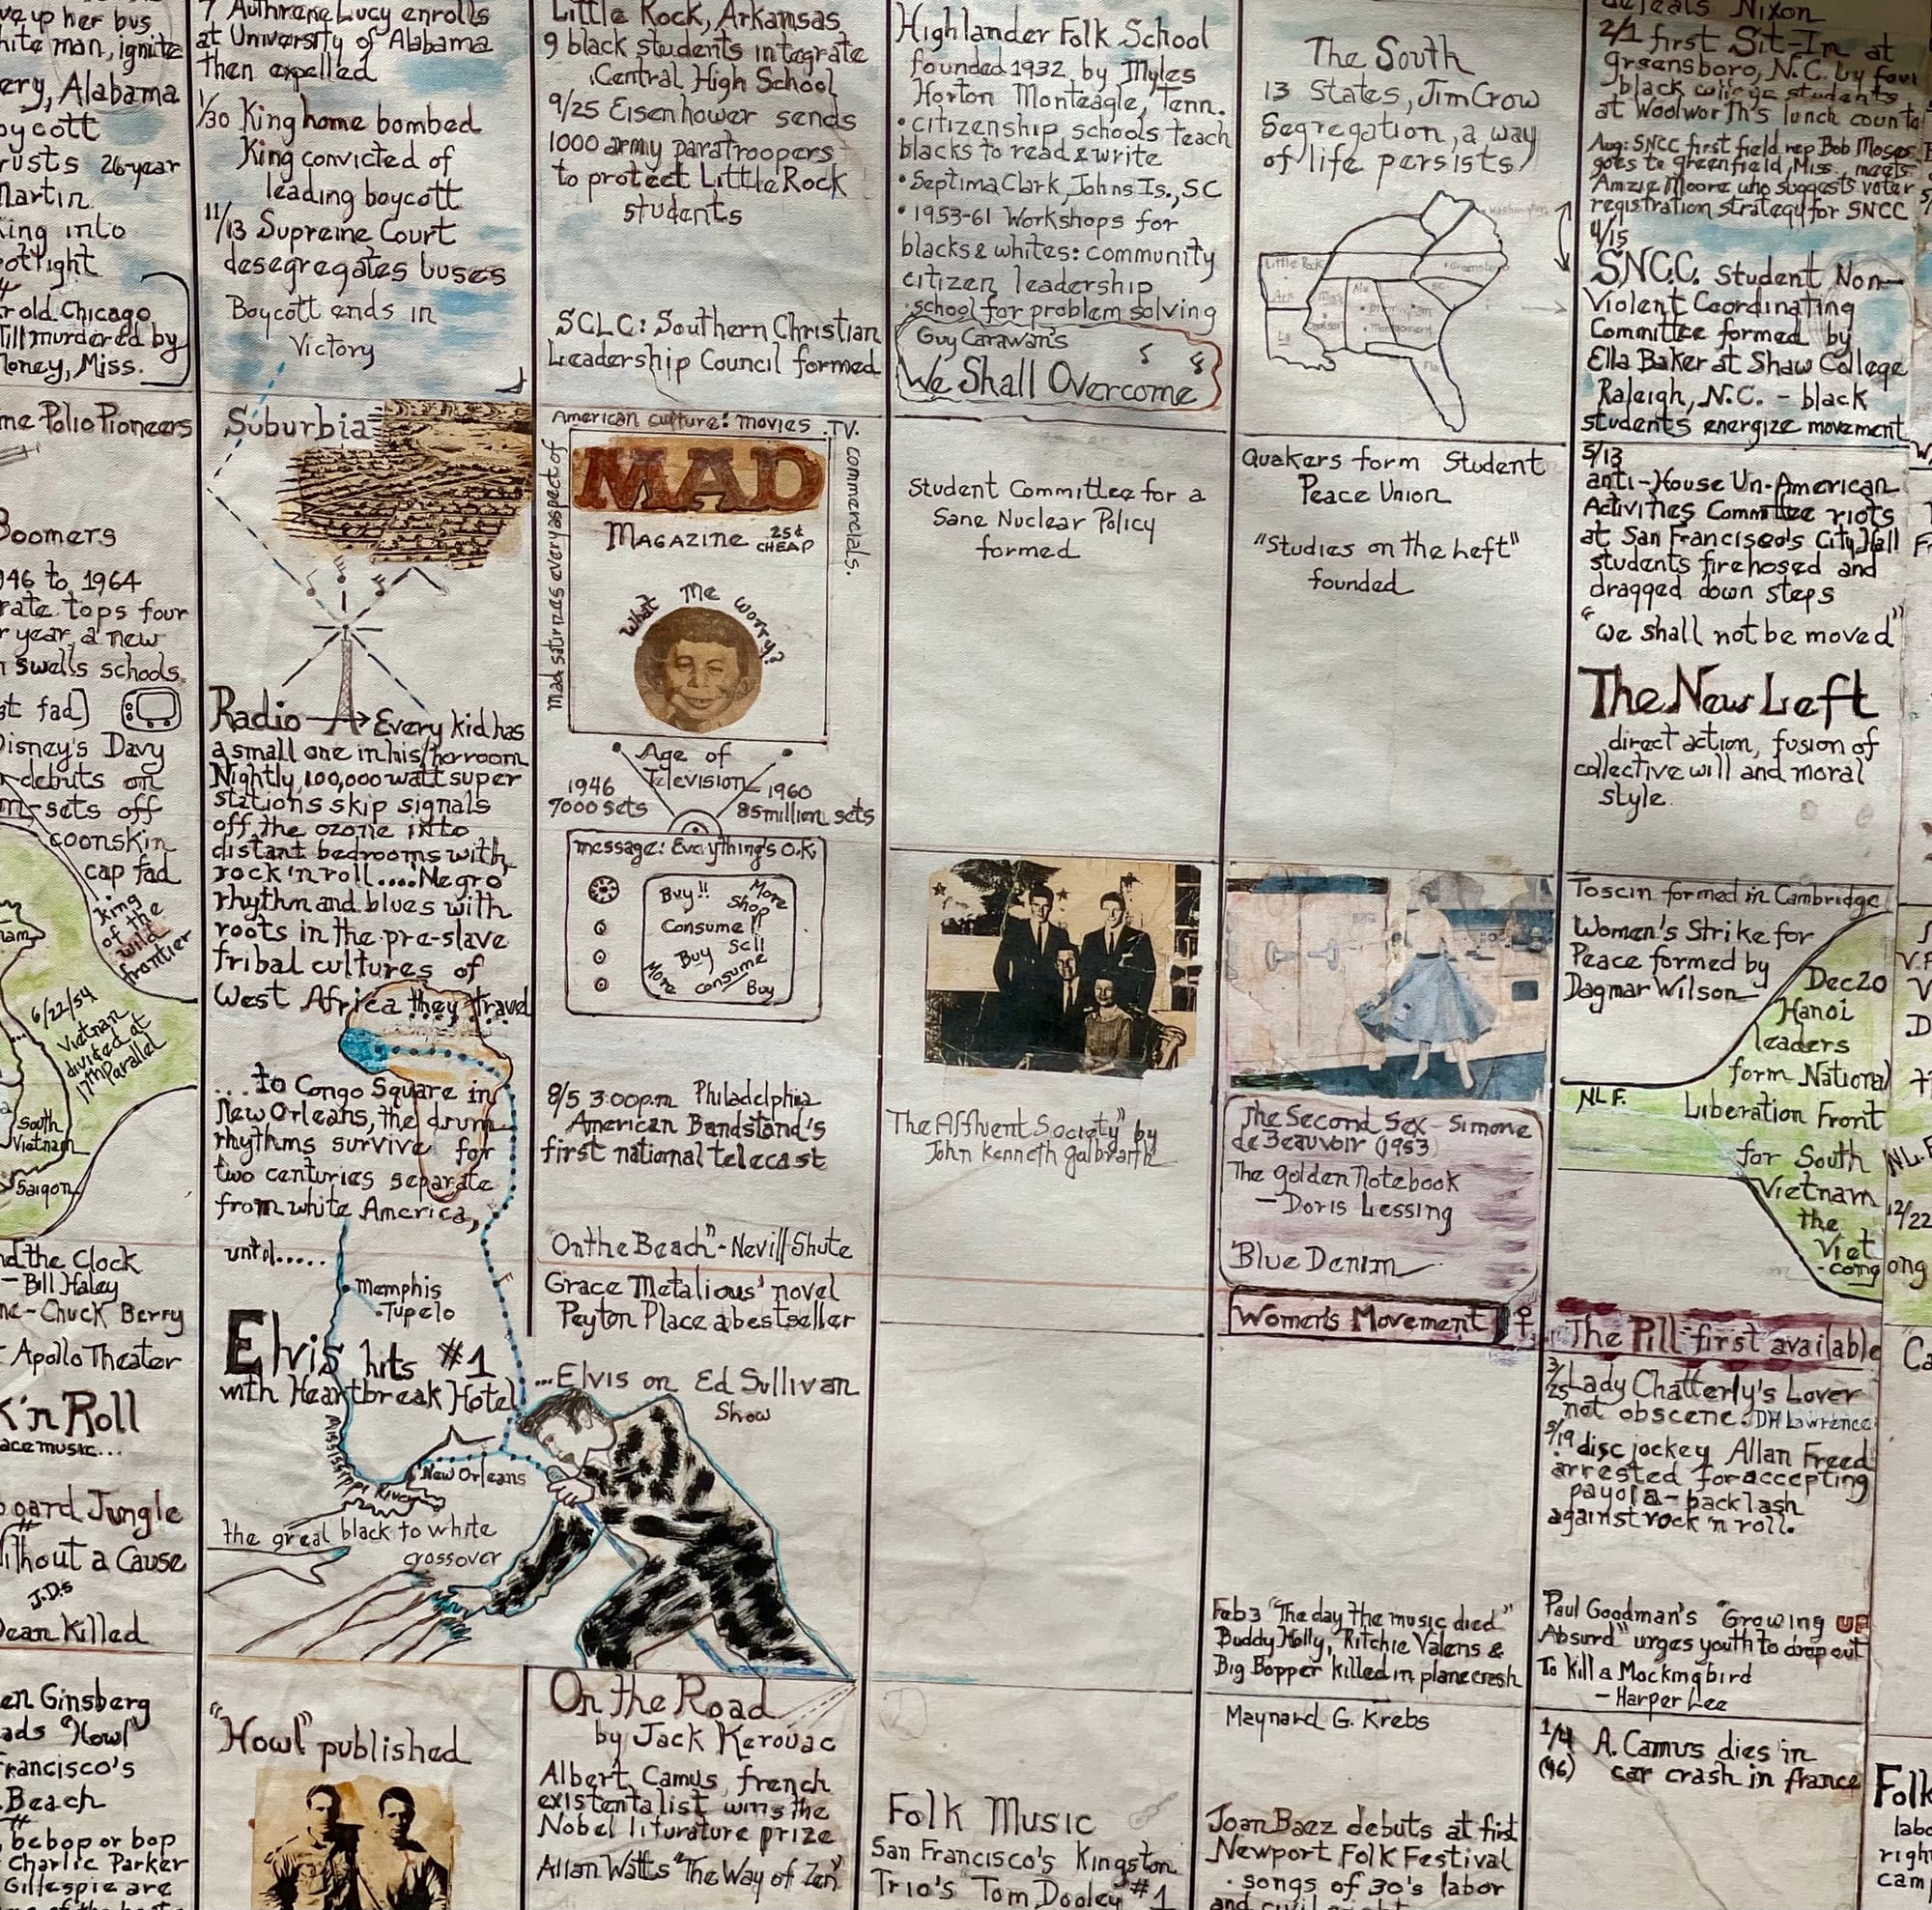 ve up her bus
white man, ignite
ery, Alabama
oycott
rusts 26-year
Martin
King into
potlight
r old Chicago
Till murdered by
Money, Miss.
me Polio Pioneers
Boomers
946 to 1964
rate tops four
r year, a new
n swells schools.
st fad)
Disney's Davy
debuts on
m-sets off
coonskin
cap fad
King
of the
wild
frontier
nam
6/22/54
Vietnan
divided at
17th Parallel
South
Vietnam
Saigon
nd the Clock
- Bill Haley
ne - Chuck Berry
Apollo Theater
k'n Roll
ace music...
board Jungle
Without a Cause
J.D.s
Dean Killed
en Ginsberg
ads "Howl"
Francisco's
Beach
, bebop or bop
Charlie Parker
Gillespie are
7 Autherene Lucy enrolls
at University of Alabama
then expelled
1/30 King home bombed
King convicted of
leading boycott
11/13 Supreme Court
desegregates buses
Boycott ends in
Victory
Suburbia
Radio → Every kid has
a small one in his/her room
Nightly, 100,000 watt super
stations skip signals
off the ozone into
distant bedrooms with
rock 'n roll.... 'Negro'
rhythm and blues with
roots in the pre-slave
tribal cultures of
West Africa they travel
...to Congo Square in
New Orleans, the drum
rhythms survive for
two centuries separate
from white America,
until.....
Memphis
Tupelo
Elvis hits #1
with Heartbreak Hotel
Mississippi River
New Orleans
the great black to white
crossover
"Howl" published
Little Rock, Arkansas
9 black students integrate
Central High School
9/25 Eisenhower sends
1000 army paratroopers
to protect Little Rock
students
SCLC: Southern Christian
Leadership Council formed
Mad satirizes every aspect of
American culture: movies TV.
commercials.
MAD
MAGAZINE 25¢
CHEAP
What Me Worry?
Age of
Television
1946
7000 sets
1960
85 million sets
message: Everything's O.K
Buy!!
More
Shop
Consume!!
Buy
Sell
More
Consume
Buy
8/5 3:00 p.m Philadelphia
American Bandstand's
first national telecast
"On the Beach" - Nevill Shute
Grace Metalious' novel
Peyton Place a bestseller
...Elvis on Ed Sullivan
Show
On the Road
by Jack Kerouac
Albert Camus, french
existentalist wins the
Nobel liturature prize
Allan Watts "The Way of Zen"
Highlander Folk School
founded 1932 by Myles
Horton Monteagle, Tenn.
• citizenship schools teach
blacks to read & write
• Septima Clark, Johns Is., SC
• 1953-61 Workshops for
blacks & whites: community
citizen leadership
• school for problem solving
Guy Carawan's
We Shall Overcome
Student Committee for a
Sane Nuclear Policy
formed
The Affluent Society" by
John Kenneth Galbraith
Folk Music
San Francisco's Kingston
Trio's Tom Dooley #1
The South
13 States, Jim Crow
Segregation, a way
of life persists
Washington
Little Rock
Greensboro
Ark
Miss
Ala
SC
Birmingham
Montgomery
La
Fla
Quakers form Student
Peace Union
"Studies on the Left"
founded
The Second Sex - Simone
de Beauvoir (1953)
The Golden Notebook
- Doris Lessing
Blue Denim
Women's Movement ♀
Feb 3 "The day the music died"
Buddy Holly, Ritchie Valens &
Big Bopper killed in plane crash
Maynard G. Krebs
Joan Baez debuts at first
Newport Folk Festival
• songs of 30's labor
defeats Nixon
2/1 first Sit-In at
greensboro, N.C. by four
black college students
at Woolworth's lunch counter
Aug: SNCC first field rep Bob Moses
goes to greenfield, Miss., meets
Amzie Moore who suggests voter
registration strategy for SNCC
4/15
SNCC. Student Non-
Violent Coordinating
Committee formed by
Ella Baker at Shaw College
Raleigh, N.C. - black
students energize movement
5/13
anti-House Un-American
Activities Committee riots
at San Francisco's City Hall
students firehosed and
dragged down steps
"we shall not be moved"
The New Left
direct action, fusion of
collective will and moral
style.
Toscin formed in Cambridge
Women's Strike for
Peace formed by
Dagmar Wilson
Dec 20
Hanoi
leaders
form National
Liberation Front
for South
Vietnam
the
Viet
-cong
NLF.
The Pill first available
3/25 Lady Chatterly's Lover
not obscene. DH Lawrence
5/19 disc jockey Allan Freed
arrested for accepting
payola - backlash
against rock 'n roll.
Paul Goodman's "Growing UP
Absurd" urges youth to drop out
To Kill a Mockingbird
- Harper Lee
1/4 A. Camus dies in
(46) car crash in france
12/22
ong
Folk
labo
right
cam